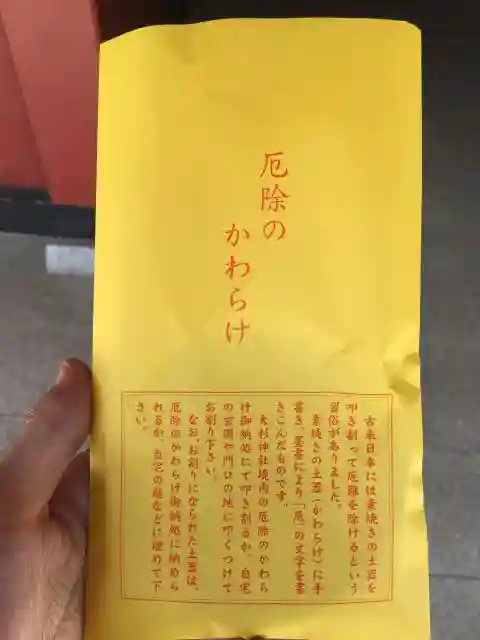 厄除の
かわらけ
古来日本には素焼きの土器を
叩き割って厄難を除けるという
習俗がありました。
素焼きの土器（かわらけ）に手
書き、墨書により「厄」の文字を書
きこんだものです。
大杉神社境内の厄除のかわら
け御納処にて叩き割るか、自宅
の玄関や門口の地に叩くつけて
お割り下さい。
なお、お割りになられた土器は、
厄除のかわらけ御納処に納めら
れるか、自宅の庭などに埋めて下
さい。